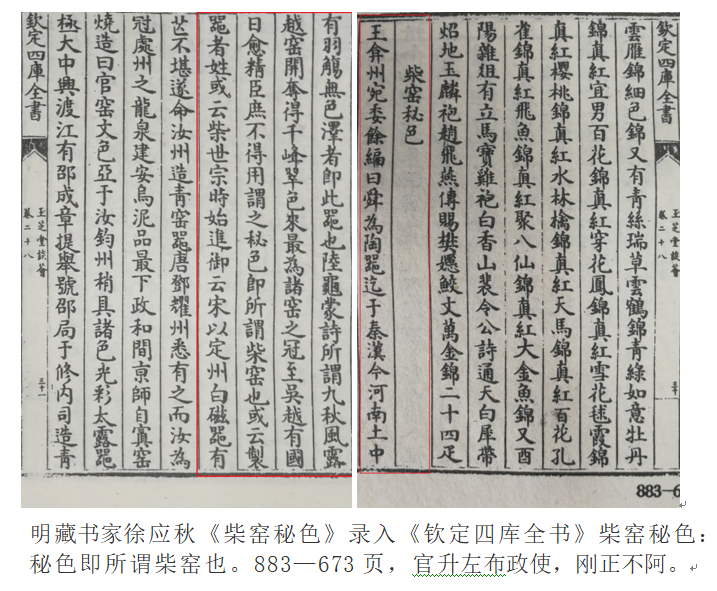 欽定四庫全書
玉芝堂談薈
卷二十八
三十
雲雁錦細色錦又有青絲瑞草雲鶴錦青綠如意牡丹
錦真紅宜男百花錦真紅穿花鳳錦真紅雪花毬霞錦
真紅櫻桃錦真紅水林檎錦真紅天馬錦真紅百花孔
雀錦真紅飛魚錦真紅聚八仙錦真紅大金魚錦又酉
陽雜俎有立馬寶雞袍白香山裴令公詩通天白犀帶
炤地玉麟袍趙飛燕傳賜樊嫕鮫文萬金錦二十四疋
柴窑秘色
王弇州宛委餘編曰舜為陶噐迄于秦漢今河南土中
883—6
有羽觴無色澤者即此噐也陸龜蒙詩所謂九秋風露
越窑開奪得千峰翠色來最為諸窑之冠至吴越有國
日愈精臣庶不得用謂之秘色即所謂柴窑也或云製
噐者姓或云柴世宗時始進御云宋以定州白磁噐有
芒不堪遂命汝州造青窑噐唐鄧耀州悉有之而汝為
冠處州之龍泉建安烏泥品最下政和間京師自寘窑
燒造曰官窑文色亞于汝鈞州稍具諸色光彩太露噐
極大中興渡江有邵成章提舉號邵局于修内司造青
欽定四庫全書
玉芝堂談薈
卷二十八
三十一
明藏书家徐应秋《柴窑秘色》录入《钦定四库全书》柴窑秘色：
秘色即所谓柴窑也。883—673页，官升左布政使，刚正不阿。